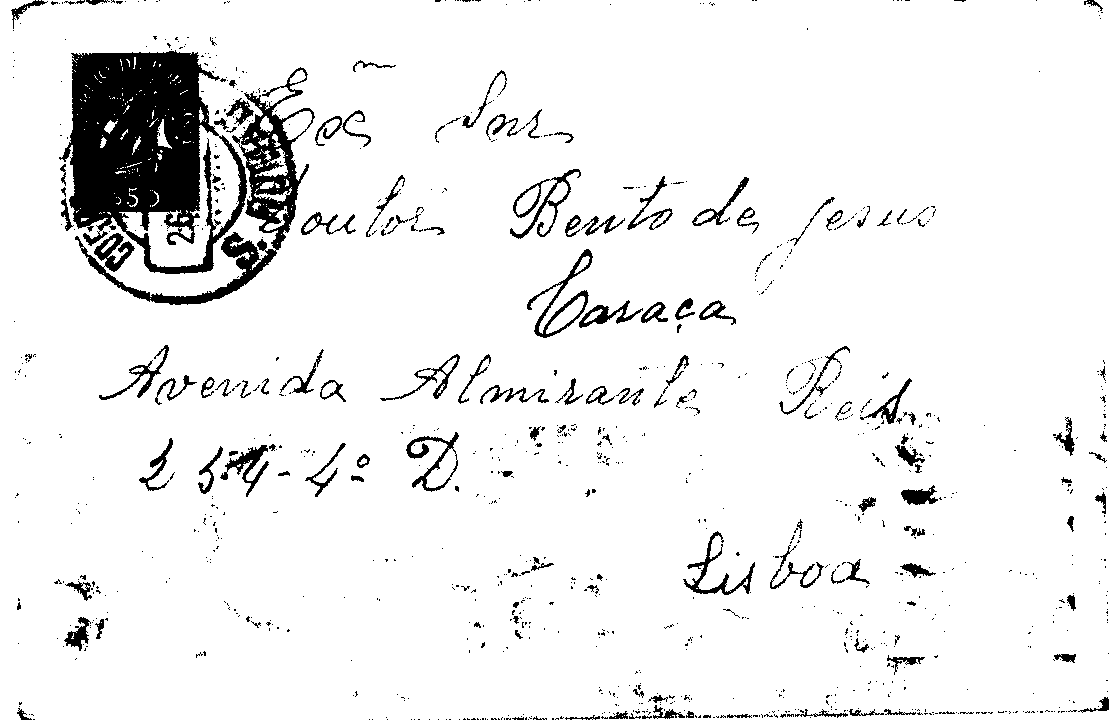 Exᵐᵃ Snr
Doutor Bento de Jesus
Caraça
Avenida Almirante Reis
254-4º D.
Lisboa
$50
26